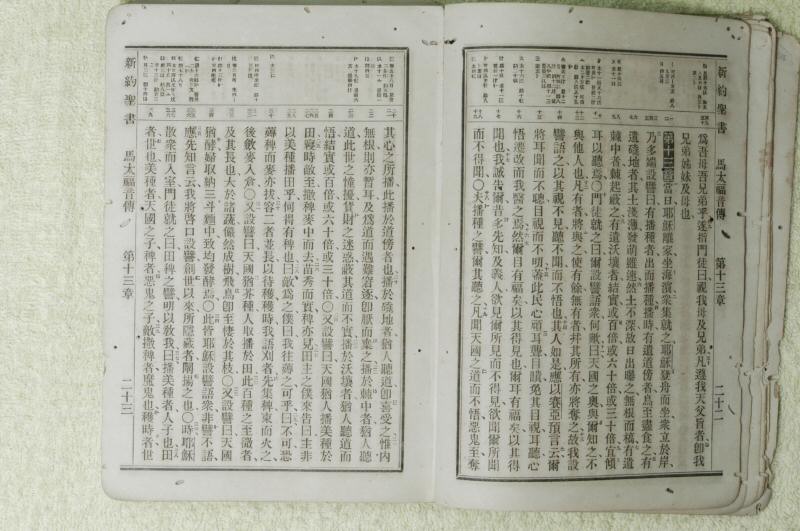 新約聖書 馬太福音傳 第十三章 二十二
爲吾母吾兄弟乎遂指門徒曰視我母及兄弟凡遵我天父旨者卽我
兄弟姊妹及母也
第十三章 當日耶穌離家坐海濱衆集就之耶穌登舟而坐衆立於岸
乃多端設譬曰有播種者出而播種播時有遺道旁者鳥至盡食之有
遺磽地者其土淺薄發萌雖速然土不深故日出曝之無根而槁有遺
棘中者棘起蔽之有遺沃壤者結實或百倍或六十倍或三十倍宜傾
耳以聽焉○門徒就之曰爾設譬語衆何歟曰天國之奧與爾知之不
與他人也凡有者將與之使有餘無有者幷其所有亦將奪之故我設
譬語之以其視不見聽不聞而不悟也其人如是應以賽亞預言云爾
將耳聞而不聰目視而不明蓋此民心頑耳聾目瞶免其目視耳聽心
悟遷改而我醫之焉然爾目有福矣以其得見也爾耳有福矣以其得
聞也我誠告爾昔多先知及義人欲見爾所見而不得見欲聞爾所聞
而不得聞○夫播種之譬爾其聽之凡聞天國之道而不悟惡鬼至奪
其心之所播此播於道傍者也播於磽地者猶人聽道卽喜受之惟內
無根則亦暫耳及爲道而遇難窘逐卽厭而棄之播於棘中者猶人聽
道此世之憧擾貨財之迷惑蔽其道而不實播於沃壤者猶人聽道而
悟結實或百倍或六十倍或三十倍○又設譬曰天國猶人播美種於
田寢時敵至撒稗麥中而去苗秀而實稗亦見田主之僕來告曰主非
以美種播田乎何得有稗也曰敵爲之僕曰我往薅之可乎曰不可恐
薅稗而麥亦拔容二者並長以待穫穫時我語刈者先集稗束而火之
後斂麥入倉○又設譬曰天國猶芥種人取播於田此百種之至微者
及其長也大於諸蔬儼然成樹飛鳥卽至棲於其枝○又設譬曰天國
猶酵婦取納三斗麵中致均發酵焉○此皆耶穌設譬語衆非譬不語
應先知言云我將啓口設譬創世以來所隱藏者闡揚之也○時耶穌
散衆而入室門徒就之曰田稗之譬明以敎我曰播美種者人子也田
者世也美種者天國之子稗者惡鬼之子敵撒稗者魔鬼也穫時者世
新約聖書 馬太福音傳 第十三章 二十三